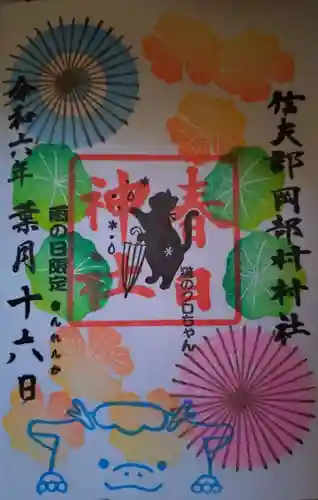 信夫郡岡部村村社
春日
神社
猫のクロちゃん
雨の日限定
きんれんか
令和六年 葉月 十六日